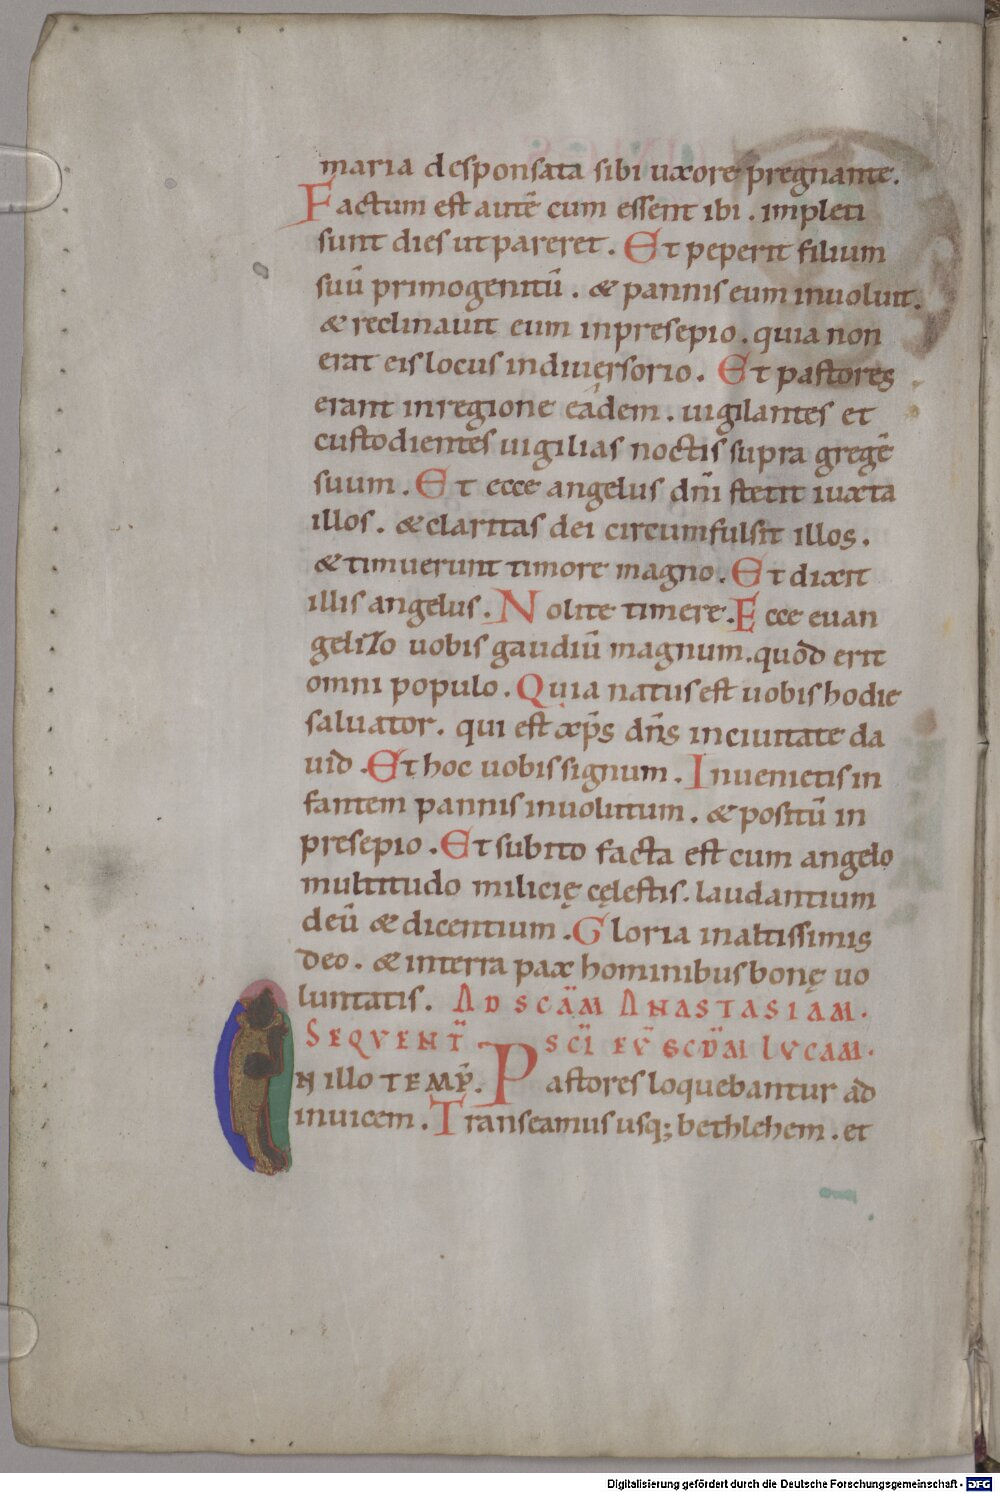 maria desponsata sibi uxore pregnante.
Factum est autē cum essent ibi . impleti
sunt dies ut pareret . Et peperit filium
suū primogenitū . & pannis eum inuoluit.
& reclinauit eum inpresepio . quia non
erat eis locus indiuersorio . Et pastores
erant inregione eadem . uigilantes et
custodientes uigilias noctis supra gregē
suum . Et ecce angelus dñi stetit iuxta
illos . & claritas dei circumfulsit illos .
& timuerunt timore magno . Et dixit
illis angelus . Nolite timere . Ecce euan
gelizo uobis gaudiū magnum . quod erit
omni populo . Quia natus est uobis hodie
saluator . qui est xp̄s dn̄s inciuitate da
uid . Et hoc uobis signum . Inuenietis in
fantem pannis inuolutum . & positū in
presepio . Et subito facta est cum angelo
multitudo milicię cęlestis . laudantium
deū & dicentium . Gloria inaltissimis
deo . & interra pax hominibus bonę uo
luntatis . AD SCĀM ANASTASIAM .
SEQVENT̄ SCĪ EV̄ SCD̄M LVCAM .
IN illo TEMP̄ . Pastores loquebantur ad
inuicem . Transeamus usq; bethlehem . et
Digitalisierung gefördert durch die Deutsche Forschungsgemeinschaft - DFG